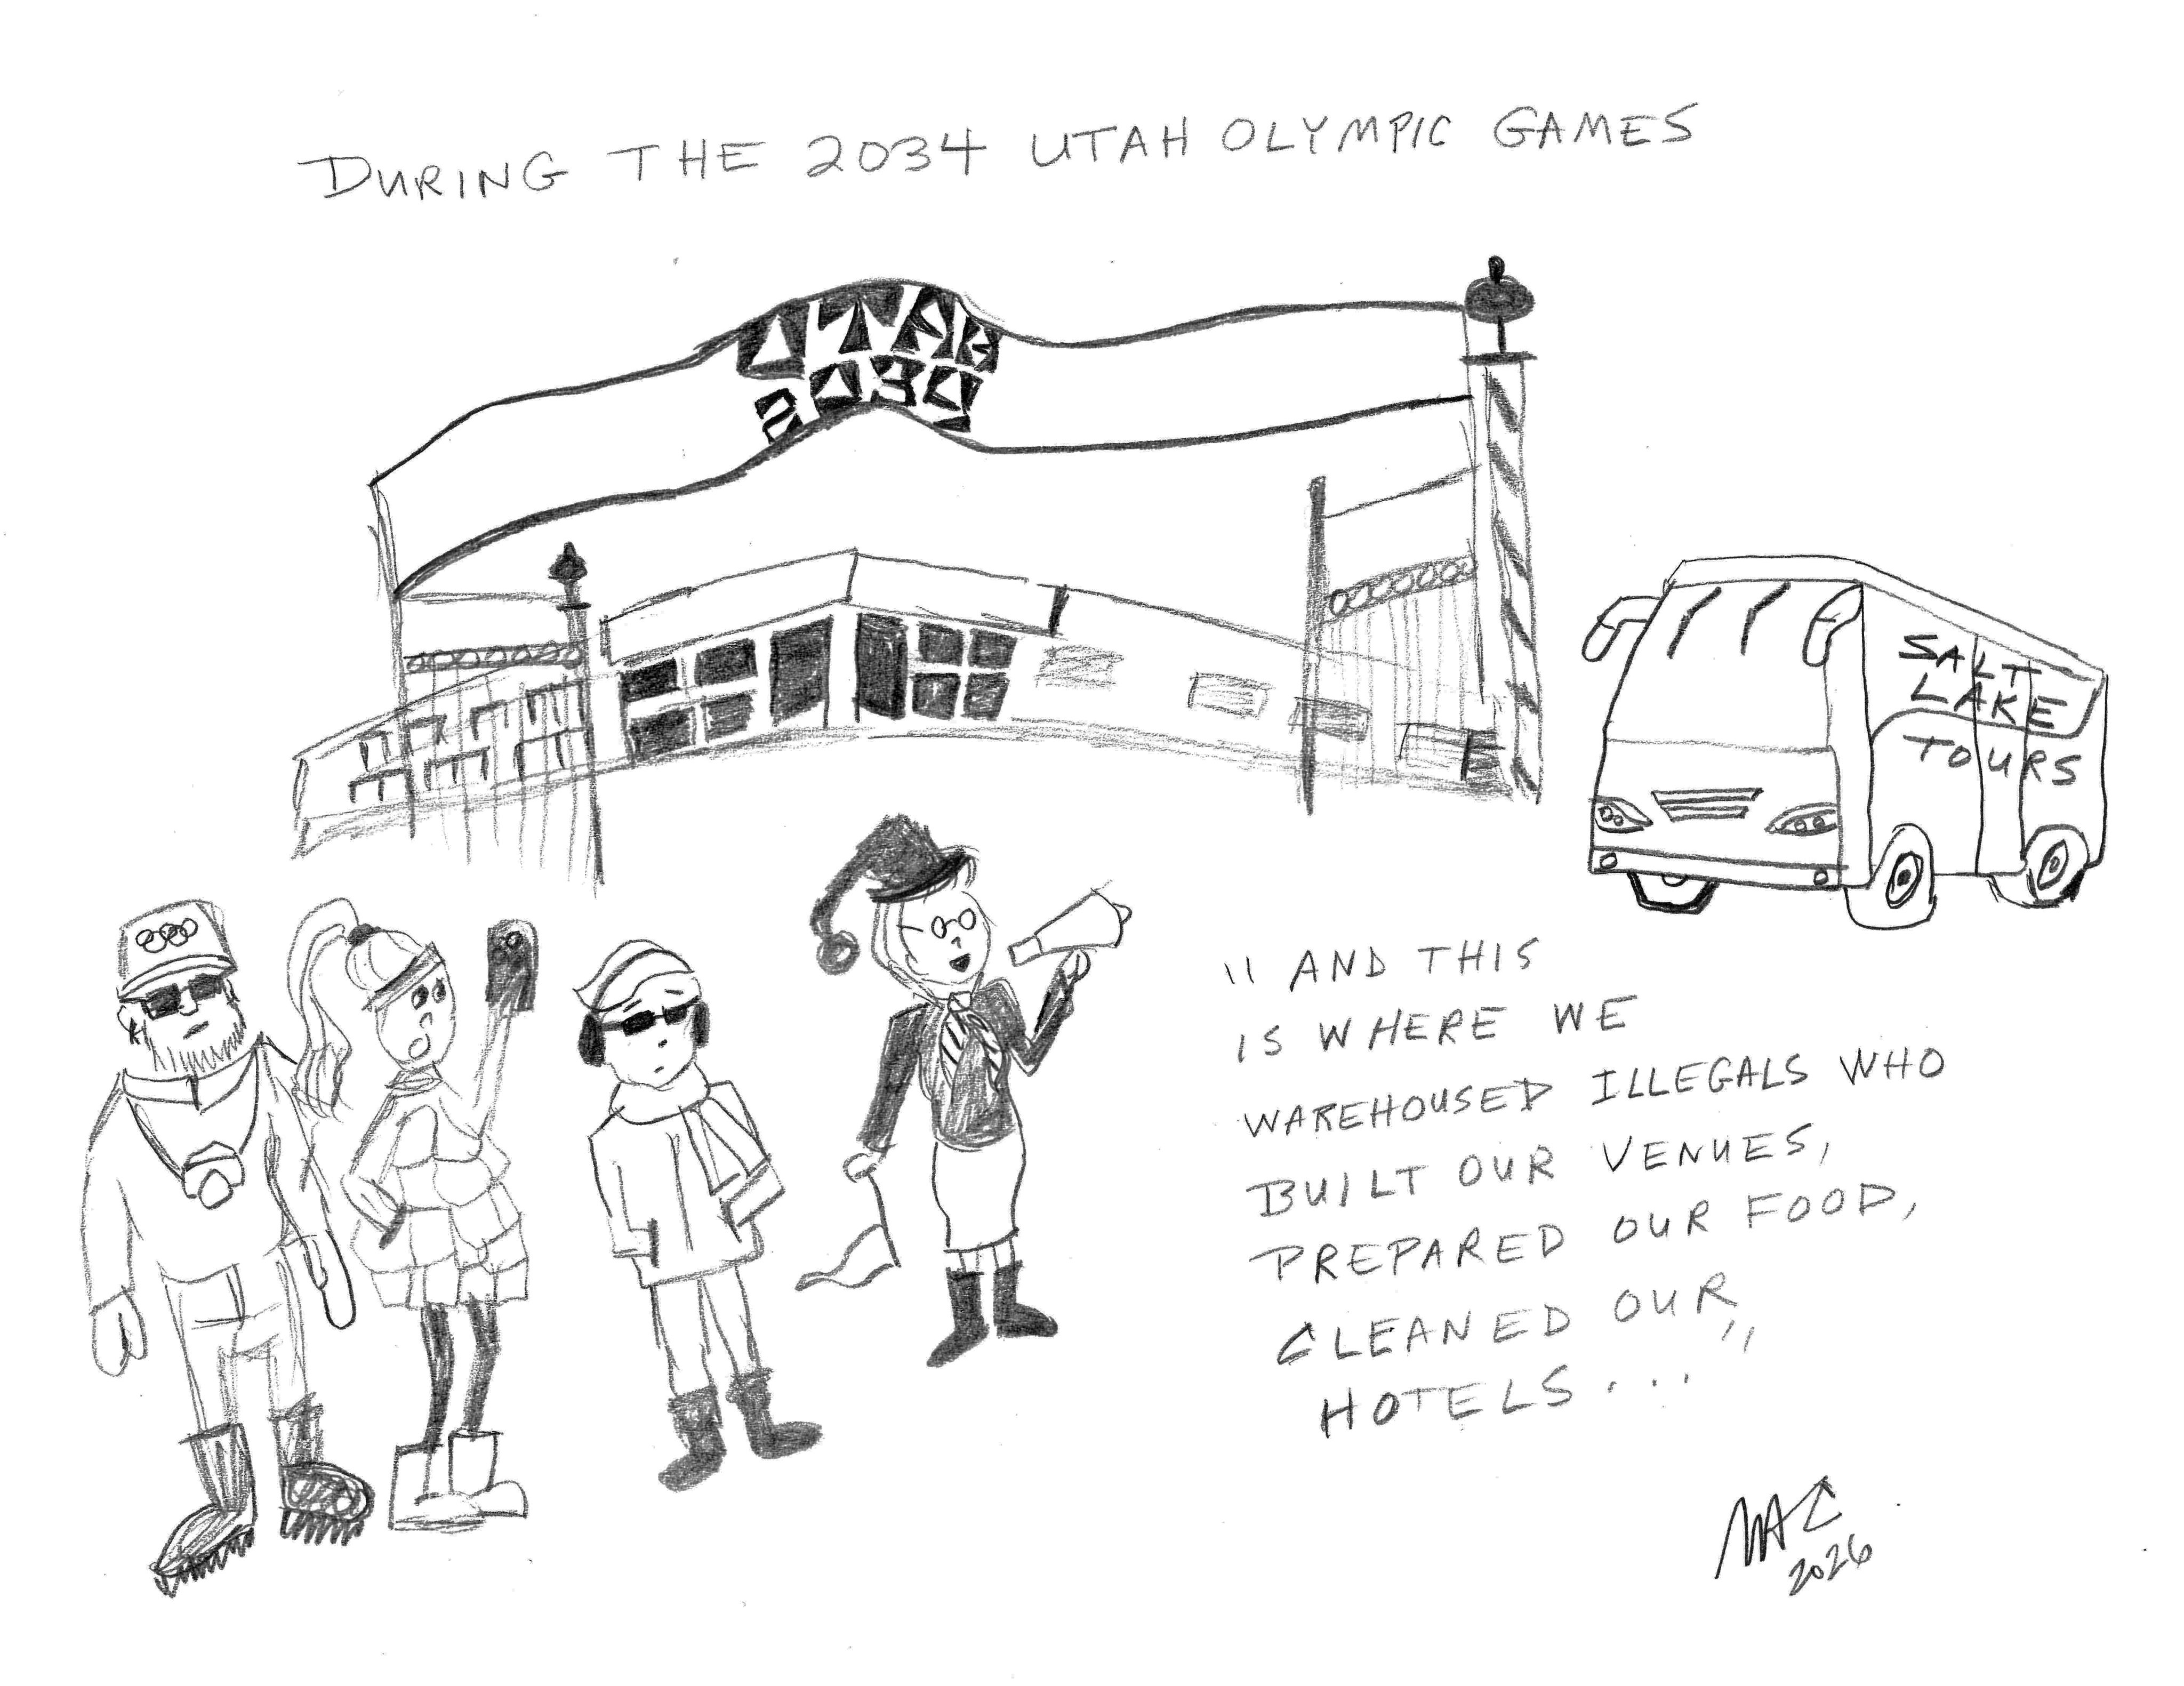 DURING THE 2034 UTAH OLYMPIC GAMES
UTAH
2034
SALT
LAKE
TOURS
"AND THIS
IS WHERE WE
WAREHOUSED ILLEGALS WHO
BUILT OUR VENUES,
PREPARED OUR FOOD,
CLEANED OUR
HOTELS..."
MAC
2026